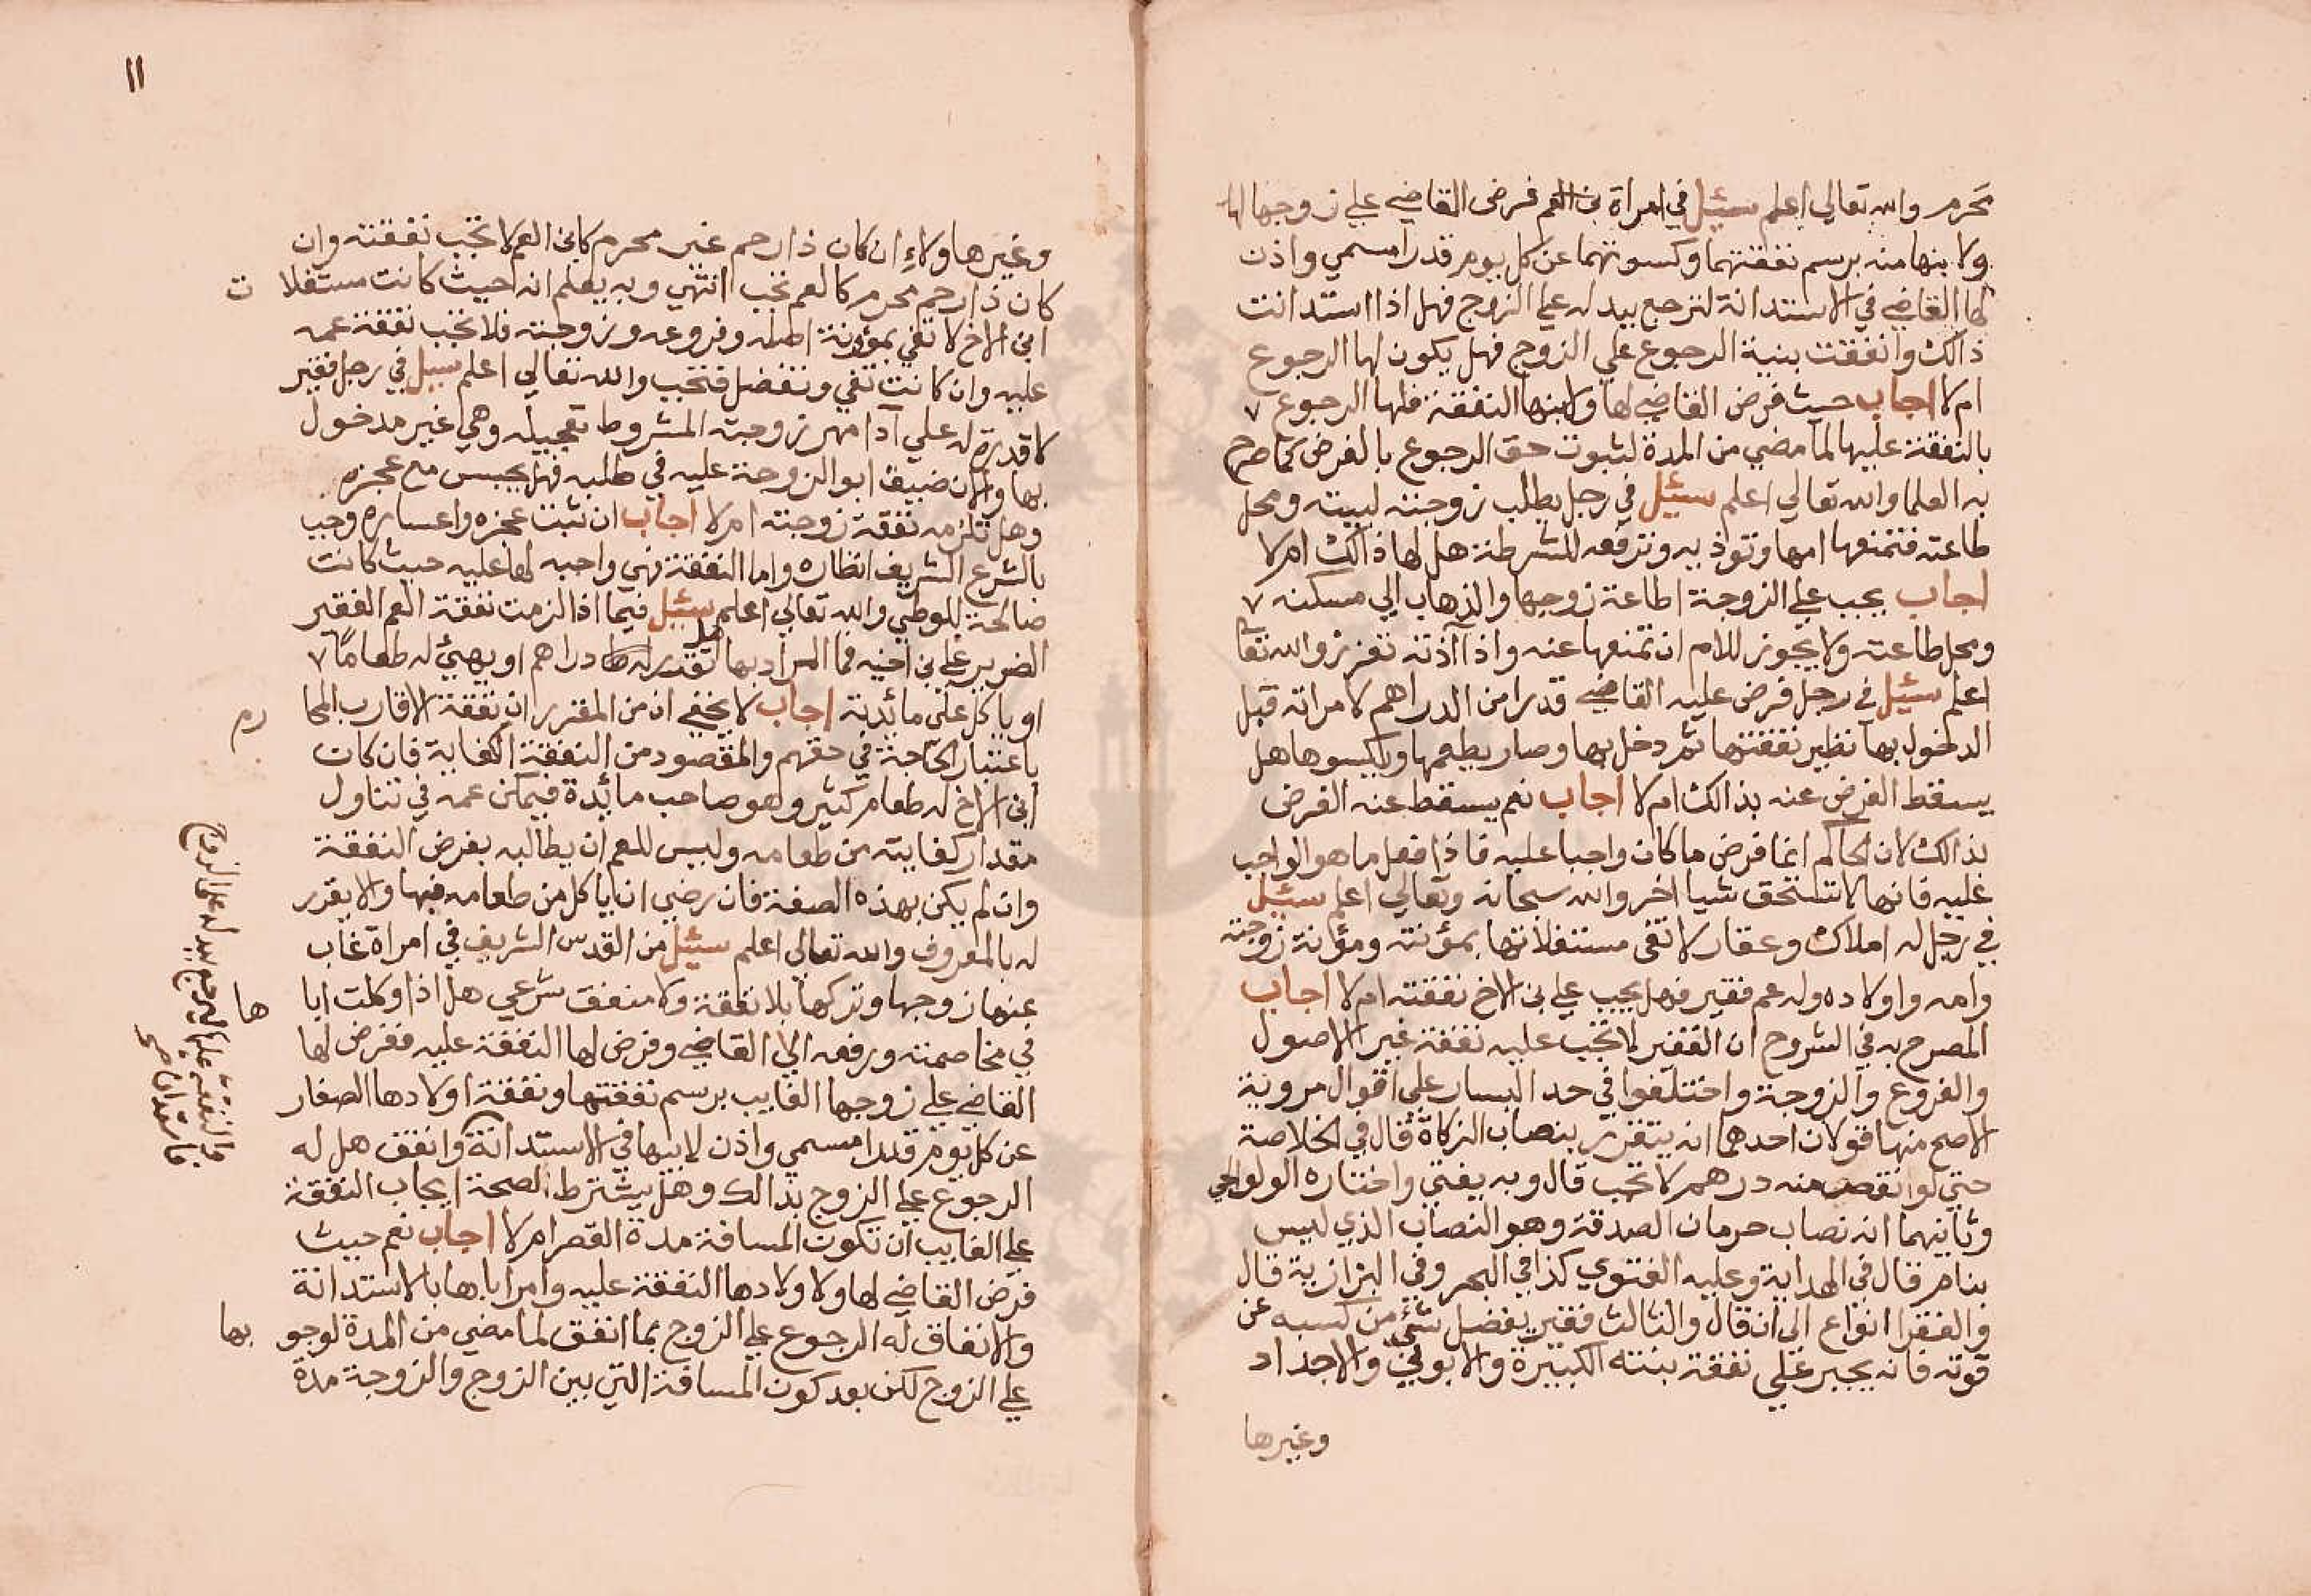 محرم والله تعالي اعلم سئيل في امراة بنت العم فرض القاضي علي زوجها لها
ولابنها منه برسم نفقتهما وكسوتهما عن كل يوم قدرا مسمي واذن
لها القاضي في الاستدانة لترجع بيد له علي الزوج فهل اذا استدانت
ذالك وانفقت بنية الرجوع علي الزوج فهل يكون لها الرجوع
ام لا اجاب حيث فرض القاضي لها ولابنها النفقة فلها الرجوع
بالنفقة عليها لما مضي من المدة لثبوت حق الرجوع بالفرض كما صرح
به العلما والله تعالي اعلم سئيل في رجل يطلب زوجته لبيته ومحل
طاعته فتمنعها امها وتوذيه وترفعه للشرطة هل لها ذالك ام لا
اجاب يجب علي الزوجة اطاعة زوجها والذهاب الي مسكنه
ومحل طاعته ولا يجوز للام ان تمنعها عنه واذا آذته تعزر والله تعا
اعلم سئيل في رجل فرض عليه القاضي قدرا من الدراهم لامراته قبل
الدخول بها نظير نفقتها ثم دخل بها وصار يطعمها ويكسوها هل
يسقط الفرض عنه بذالك ام لا اجاب نعم يسقط عنه الفرض
بذالك لان الحاكم انما فرض ما كان واجبا عليه فاذا فعل ما هو الواجب
عليه فانها لا تستحق شيا اخر والله سبحانه وتعالي اعلم سئيل
في رجل له املاك وعقار لا تفي مستغلاتها بمؤنته ومؤنة زوجته
وامه واولاده وله عم فقير فهل يجب علي بن الاخ نفقته ام لا اجاب
المصرح به في الشروح ان الفقير لا تجب عليه نفقة غير الاصول
والفروع والزوجة واختلفوا في حد اليسار علي اقوال مروية
الاصح منها قولان احدهما انه يتقرر بنصاب الزكاة قال في الخلاصة
حتي لو انقص منه درهم لا تجب قال وبه يفتي واختاره الولوالجي
وثانيهما انه نصاب حرمان الصدقة وهو النصاب الذي ليس
بنام قال في الهداية وعليه الفتوي كذا في البحر وفي البزازية قال
والفقرا انواع الي ان قال والثالث فقير يفضل شئ من كسبه عن
قوته فانه يجبر علي نفقة بنته الكبيرة والابوين والاجداد
وغيرها
١١
وغير هاولاء ان كان ذا رحم غير محرم كابن العم لا تجب نفقته وان
كان ذا رحم محرم كالعم تجب انتهي وبه يعلم انه احيث كانت مستغلا ت
ابن الاخ لا تفي بمؤنة اصله وفروعه وزوجته فلا تجب نفقة عمه
عليه وان كانت تفي وتفضل فتجب والله تعالي اعلم سيل في رجل فقير
لا قدرة له علي آدا مهر زوجته المشروط تعجيله وهي غير مدخول
بها والان ضيق ابو الزوجة عليه في طلبه فهل يحبس مع عجزه
وهل تلزمه نفقة زوجته ام لا اجاب ان ثبت عجزه واعساره وجب
بالشرع الشريف انظاره واما النفقة فهي واجبه لها عليه حيث كانت
صالحة للوطي والله تعالي اعلم سئيل فيما اذا لزمت نفقة العم الفقير
الضرير علي بن اخيه فما المراد بها هل تقدر له دراهم او يهيئ له طعاما
او ياكل علي مائدته اجاب لا يخفي ان من المقرر ان نفقة الاقارب المحا رم
باعتبار الحاجة في حقهم والمقصود من النفقة الكفاية فان كان
ابن الاخ له طعام كثير وهو صاحب مائدة فيمكن عمه في تناول
مقدار كفايته من طعامه وليس للعم ان يطالبه بفرض النفقة
وان لم يكن بهذه الصفة فان رضي ان ياكل من طعامه فبها والا يقرر
له بالمعروف والله تعالي اعلم سئيل من القدس الشريف في امراة غاب
عنها زوجها وتركها بلا نفقة ولا منفق شرعي هل اذا وكلت ابا ها
في مخاصمته ورفعه الي القاضي وفرض لها النفقة عليه ففرض لها
القاضي علي زوجها الغايب برسم نفقتها ونفقة اولادها الصغار
عن كل يوم قدرا مسمي واذن لابيها في الاستدانة وانفق هل له
الرجوع علي الزوج بذالك وهل يشترط لصحة ايجاب النفقة
علي الغايب ان تكون المسافة مدة القصر ام لا اجاب نعم حيث
فرض القاضي لها ولاولادها النفقة عليه وامر اباها بالاستدانة
والانفاق له الرجوع علي الزوج بما انفق لما مضي من المدة لوجو بها
علي الزوج لكن بعد كون المسافة التي بين الزوج والزوجة مدة
والنفقة عليهم ليرجع بيد له علي الزوج